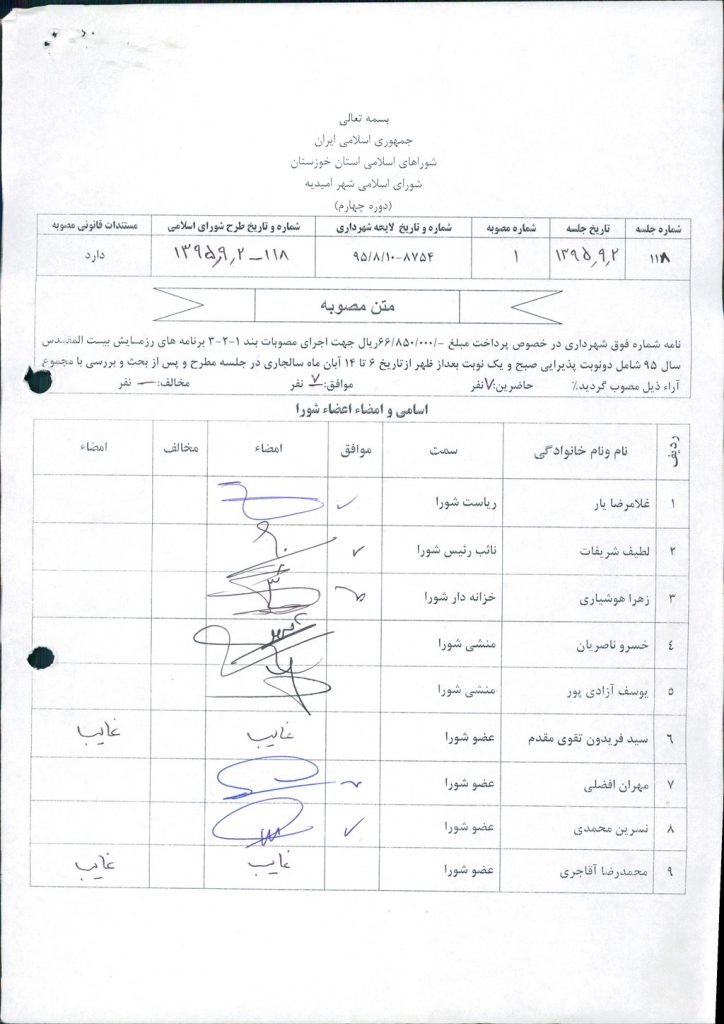 بسمه تعالی
جمهوری اسلامی ایران
شوراهای اسلامی استان خوزستان
شورای اسلامی شهر امیدیه
(دوره چهارم)
شماره جلسه تاریخ جلسه شماره مصوبه شماره و تاریخ لایحه شهرداری شماره و تاریخ طرح شورای اسلامی مستندات قانونی مصوبه
۱۱۸ ۱۳۹۵٫۹٫۲ ۱ ۹۵/۸/۱۰-۸۷۵۴ ۱۱۸-۱۳۹۵٫۹٫۲ دارد
متن مصوبه
نامه شماره فوق شهرداری در خصوص پرداخت مبلغ -/۶۶/۸۵۰/۰۰۰ریال جهت اجرای مصوبات بند ۱-۲-۳ برنامه های رزمایش بیت المقدس
سال ۹۵ شامل دونوبت پذیرایی صبح و یک نوبت بعداز ظهر ازتاریخ ۶ تا ۱۴ آبان ماه سالجاری در جلسه مطرح و پس از بحث و بررسی با مجموع
آراء ذیل مصوب گردید٪ حاضرین:۷نفر موافق:۷ نفر مخالف:— نفر
اسامی و امضاء اعضاء شورا
ردیف نام ونام خانوادگی سمت موافق امضاء مخالف امضاء
۱ غلامرضا یار ریاست شورا ✓
۲ لطیف شریفات نائب رئیس شورا ✓
۳ زهرا هوشیاری خزانه دار شورا
۴ خسرو ناصریان منشی شورا
۵ یوسف آزادی پور منشی شورا
۶ سید فریدون تقوی مقدم عضو شورا غایب غایب
۷ مهران افضلی عضو شورا
۸ نسرین محمدی عضو شورا ✓
۹ محمدرضا آقاجری عضو شورا غایب غایب